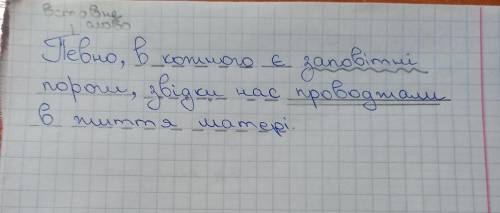 вставне
слово
Певно, в кожного є заповітні
пороги, звідки нас проводжали
в життя матері.